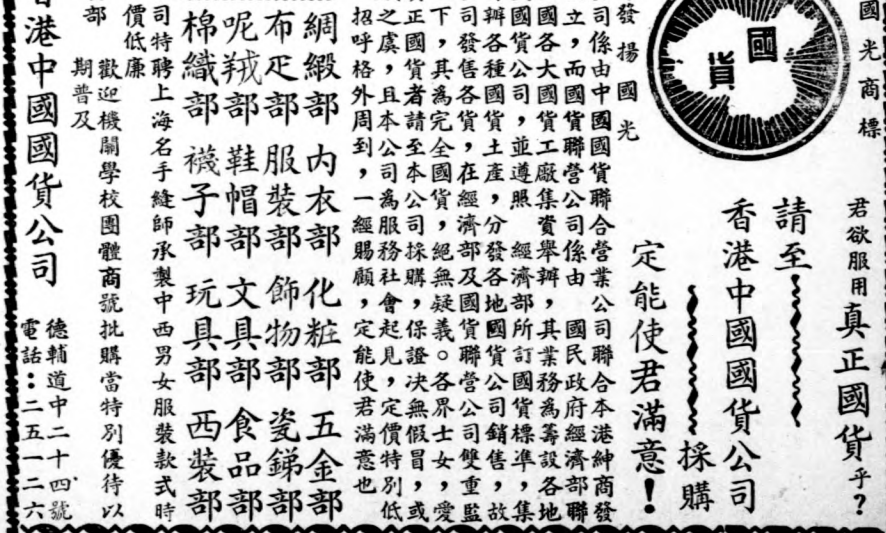 國光商標
國貨
發揚國光
君欲服用真正國貨乎？
請至
香港中國國貨公司
採購
定能使君滿意！
司係由中國國貨聯合營業公司聯合本港紳商發
立，而國貨聯營公司係由　國民政府經濟部聯
國各大國貨工廠集資舉辦，其業務為籌設各地
國貨公司，並遵照　經濟部所訂國貨標準，集
辦各種國貨土產，分發各地國貨公司銷售，故
司發售各貨，在經濟部及國貨聯營公司雙重監
下，其為完全國貨，絕無疑義。各界士女，愛
正國貨者請至本公司採購，保證決無假冒，或
之虞，且本公司為服務社會起見，定價特別低
招呼格外周到，一經賜顧，定能使君滿意也
綢緞部　內衣部　化粧部　五金部
布疋部　服裝部　飾物部　瓷銻部
呢羢部　鞋帽部　文具部　食品部
棉織部　襪子部　玩具部　西裝部
司特聘上海名手縫師承製中西男女服裝款式時
價低廉
部　歡迎機關學校團體商號批購當特別優待以
期普及
香港中國國貨公司
德輔道中二十四號
電話：二五一二六